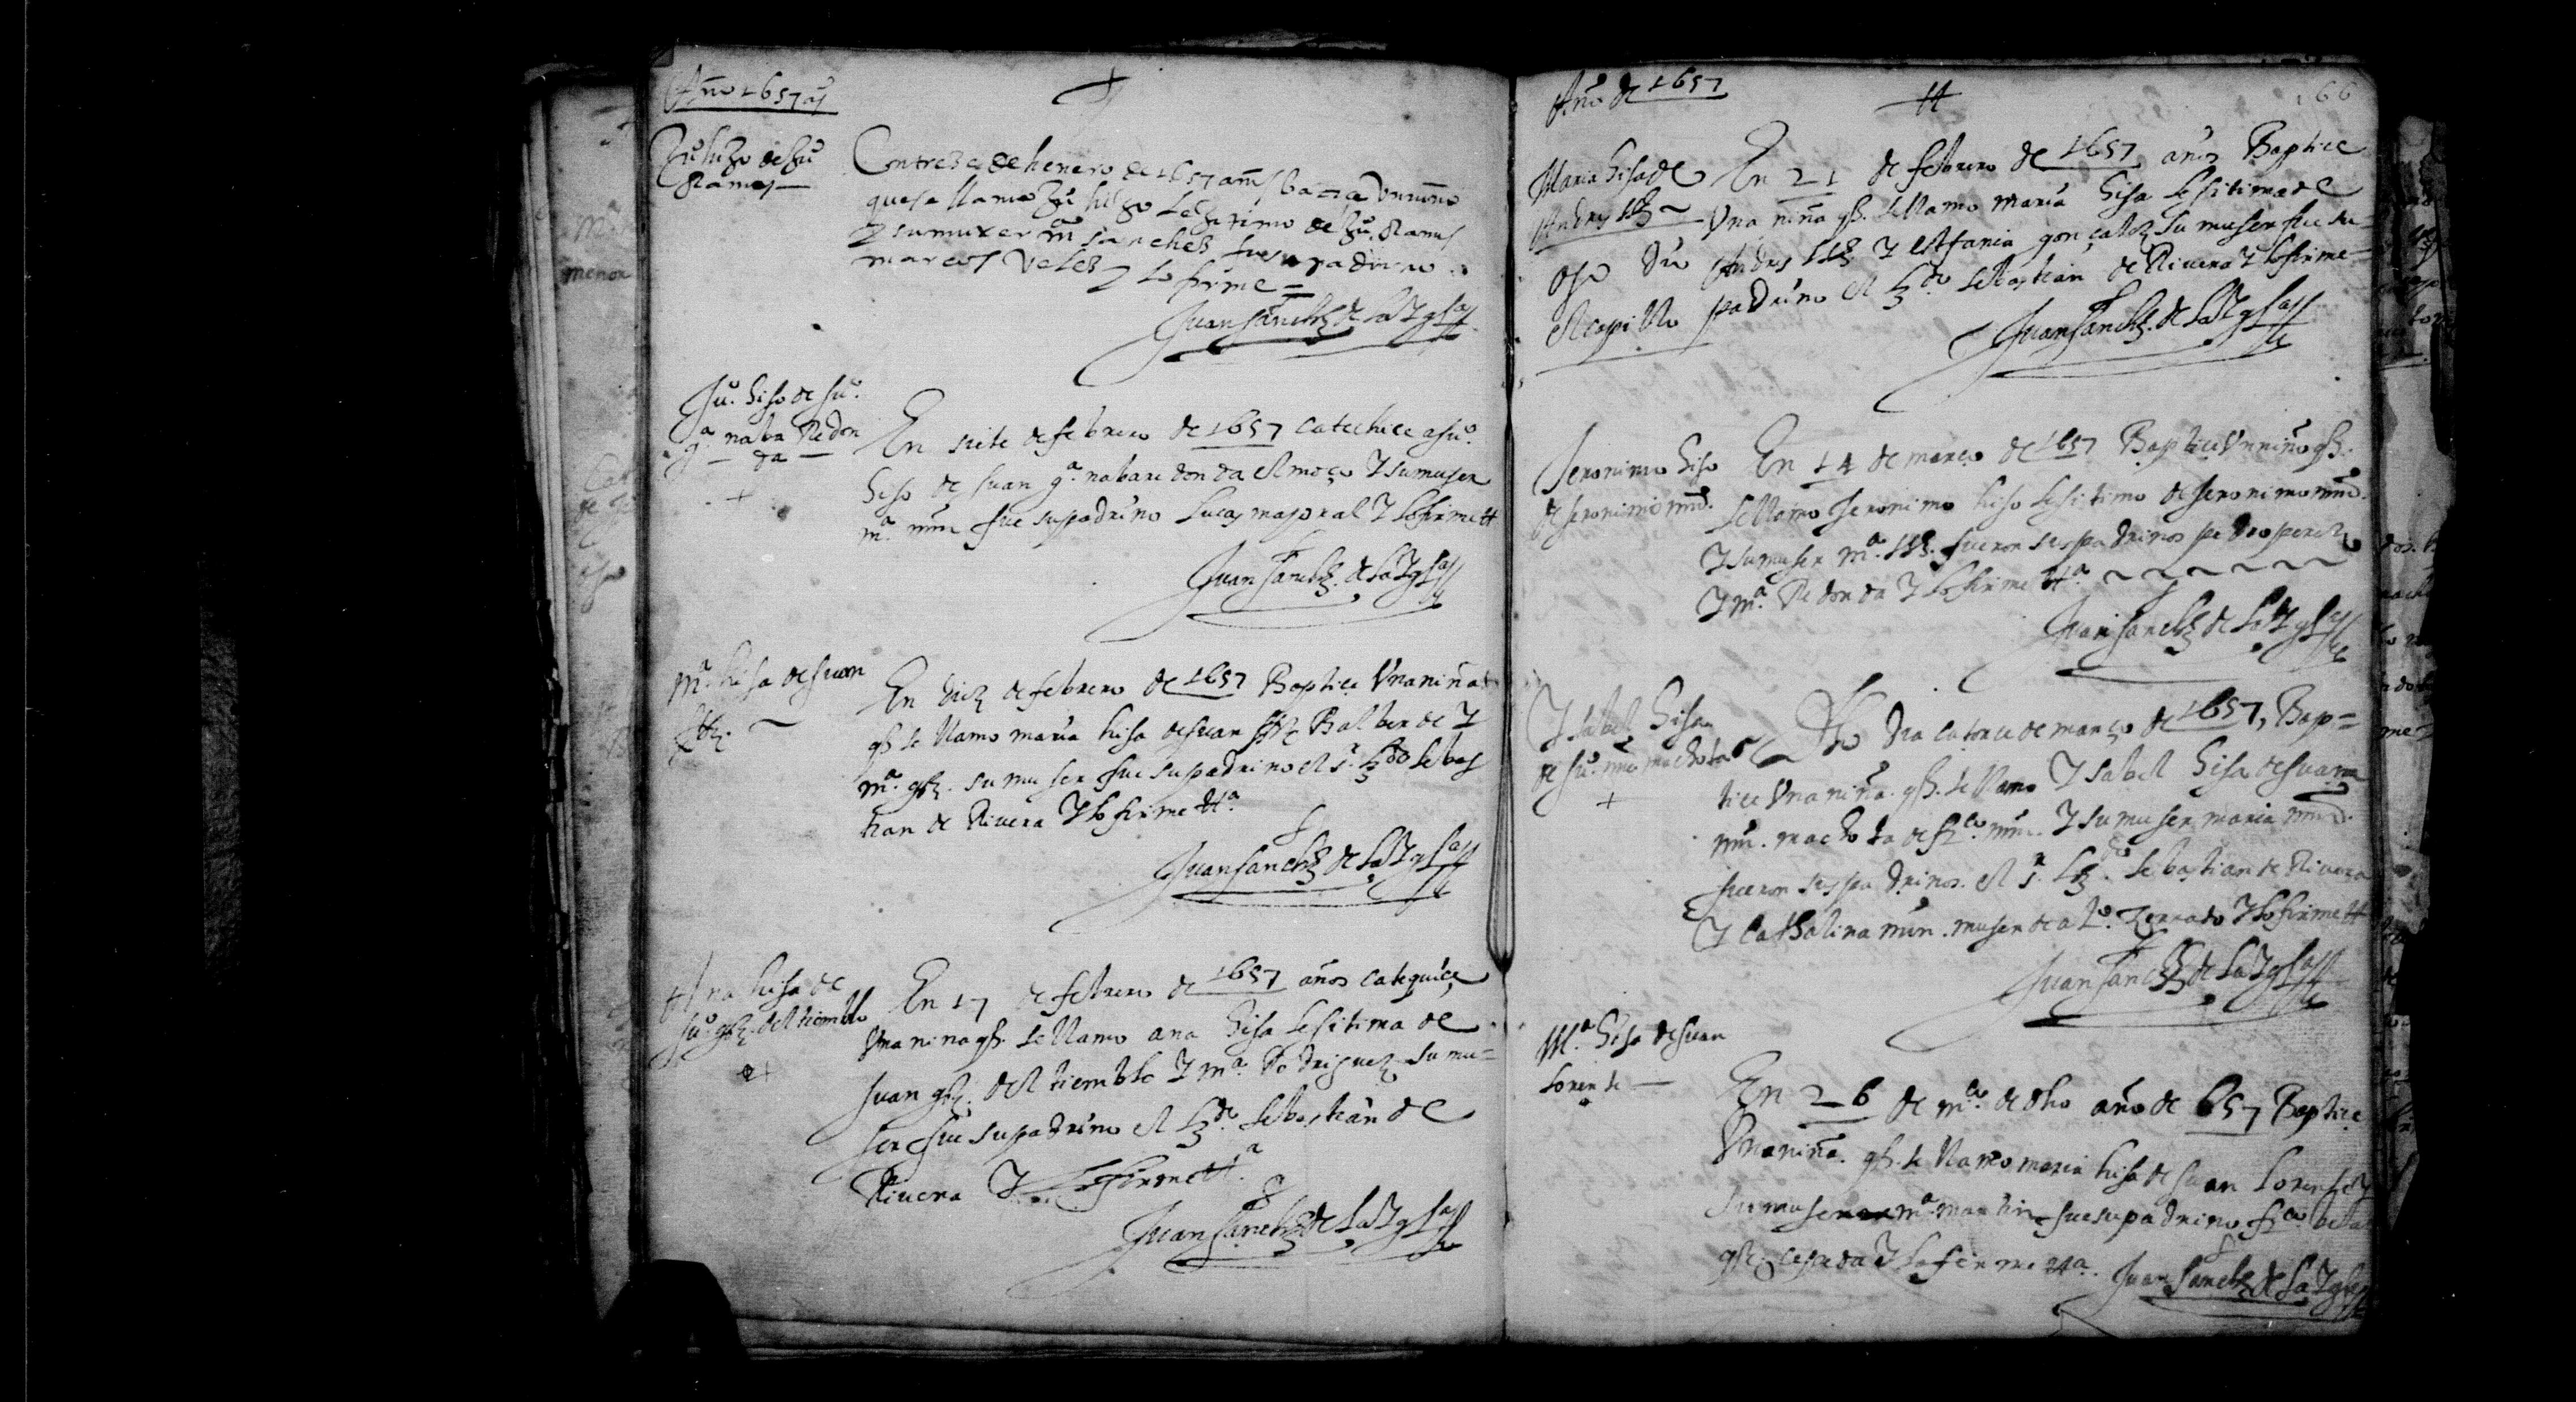 Año 1657 aº
Juº hijo de Juº
Ramos
Con treze de henero de 1657 anos batice un nino
que se llamo Juº hijo legitimo de Juº Ramos
y su muxer mª sanchez fue su padrino
marcos Velez y lo firme =
Juan Sanchz de la Yglª
Juº. hijo de Juº.
gª naba Redon
da
En siete de febrero de 1657 catechice a Juº.
hijo de Juan gª. nabaredonda el moço y su muger
mª. mnn fue su padrino Lucas majoral y lo firme tt
Juan Sanchz. de la Yglª
Mª. hija de Juan
En diez de febrero de 1657 Baptice Vna niña
qh. se llamo maria hija de Juan Balberde y
mª. glz. su muger fue su padrino el sr. Lzdo sebas
tian de Rivera y lo firme ttª.
Juan Sanchz de la Yglª
Ana hija de
Juº. glz. del tiemblo
En 17 de febrero de 1657 años catequice
Vna nina qh. se llamo ana hija legitima de
Juan glz. del tiemblo y mª. Rodriguez su mu=
ger fue su padrino el Lzdo. sebastian de
Rivera y lo firme ttª.
Juan Sanchz de la Yglª
Año de 1657
166
Maria hija de
Andres
ojo
el capillo
En 21 de febrero de 1657 años Baptice
Vna niña qh. se llamo maria hija legitima de
Andres y estfania gonçalez su muger fue su
padrino el Lzdo. sebastian de Rivera y lo firme=
Juan Sanchz. de la Yglª
Jeronimo hijo
de Jeronimo mnd.
En 14 de março de 1657 Baptice Vn niño qh.
se llamo Jeronimo hijo legitimo de Jeronimo mnd.
y su muger mª. fueron sus padrinos pedro perez
y mª. Redonda y lo firme ttª.
Juan Sanchz de la Yglª
Ysabel hija
de Juº. mn machota
dho dia catorce de março de 1657, Bap=
tice Vna niña. qh. se llamo Ysabel hija de Juan
mn. machota de frco. mn. y su muger maria mnd.
fueron sus padrinos. el sr. Lzdo. sebastian de Rivera
y Cathalina mnn. muger de alº. zerrado y lo firme tt
Juan Sanchz de la Yglª
Mª. hija de Juan
Lorente
En 26 de mço. de dho año de 657 Baptice
Vna niña. qh. se llamo maria hija de Juan Lorente y
su muger mª. martin fue su padrino frco
glz. y lo firme ttª.
Juan Sanchz de la Yglª